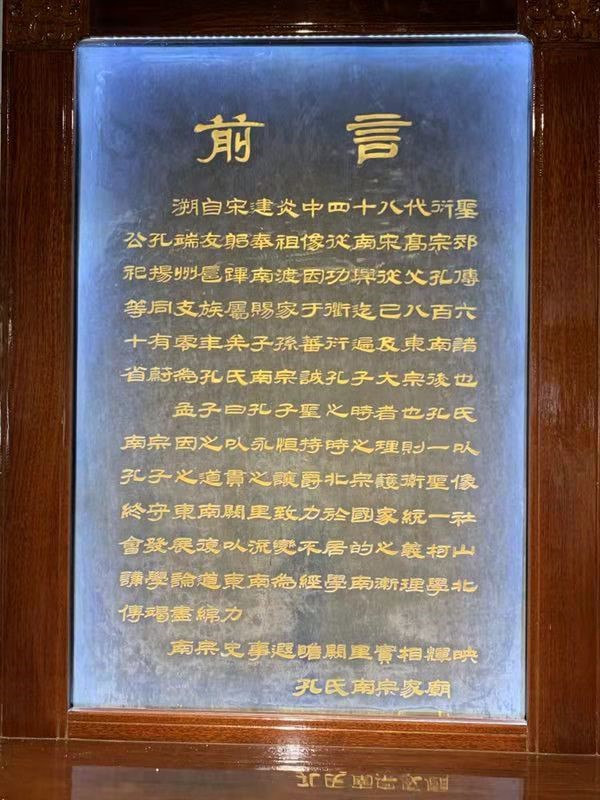 前言
溯自宋建炎中四十八代衍聖
公孔端友躬奉祖像從南宋高宗郊
祀揚州扈蹕南渡因功與從父孔傳
等同支族屬賜家于衢迄已八百六
十有零年矣子孫蕃衍遍及東南諸
省蔚為孔氏南宗誠孔子大宗後也
孟子曰孔子聖之時者也孔氏
南宗因之以永恒持時之理則一以
孔子之道貫之讓爵北宗護衛聖像
終守東南闕里致力於國家統一社
會發展復以流變不居的之義柯山
講學論道東南為經學南漸理學北
傳竭盡綿力
南宗史事遐瞻闕里實相輝映
孔氏南宗家廟